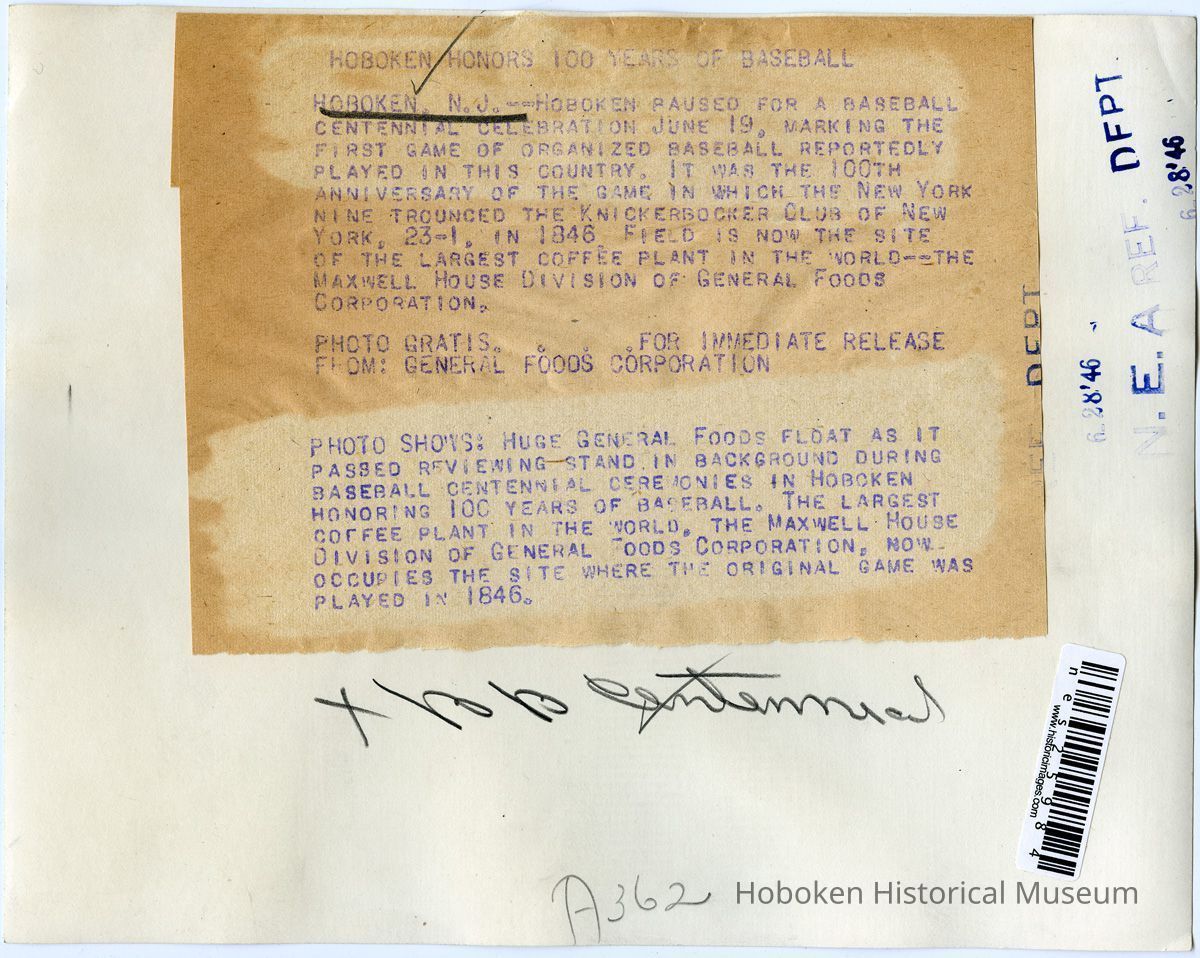 HOBOKEN HONORS 100 YEARS OF BASEBALL
HOBOKEN, N.J.--HOBOKEN PAUSED FOR A BASEBALL
CENTENNIAL CELEBRATION JUNE 19, MARKING THE
FIRST GAME OF ORGANIZED BASEBALL REPORTEDLY
PLAYED IN THIS COUNTRY. IT WAS THE 100TH
ANNIVERSARY OF THE GAME IN WHICH THE NEW YORK
NINE TROUNCED THE KNICKERBOCKER CLUB OF NEW
YORK, 23-1, IN 1846. FIELD IS NOW THE SITE
OF THE LARGEST COFFEE PLANT IN THE WORLD--THE
MAXWELL HOUSE DIVISION OF GENERAL FOODS
CORPORATION.
PHOTO GRATIS. . . .FOR IMMEDIATE RELEASE
FROM: GENERAL FOODS CORPORATION
PHOTO SHOWS: HUGE GENERAL FOODS FLOAT AS IT
PASSED REVIEWING STAND IN BACKGROUND DURING
BASEBALL CENTENNIAL CEREMONIES IN HOBOKEN
HONORING 100 YEARS OF BASEBALL. THE LARGEST
COFFEE PLANT IN THE WORLD, THE MAXWELL HOUSE
DIVISION OF GENERAL FOODS CORPORATION, NOW
OCCUPIES THE SITE WHERE THE ORIGINAL GAME WAS
PLAYED IN 1846.
N. E. A REF. DEPT.
6-28'46
6-28'46
DEPT
nes25984
www.historicimages.com
A362
Hoboken Historical Museum